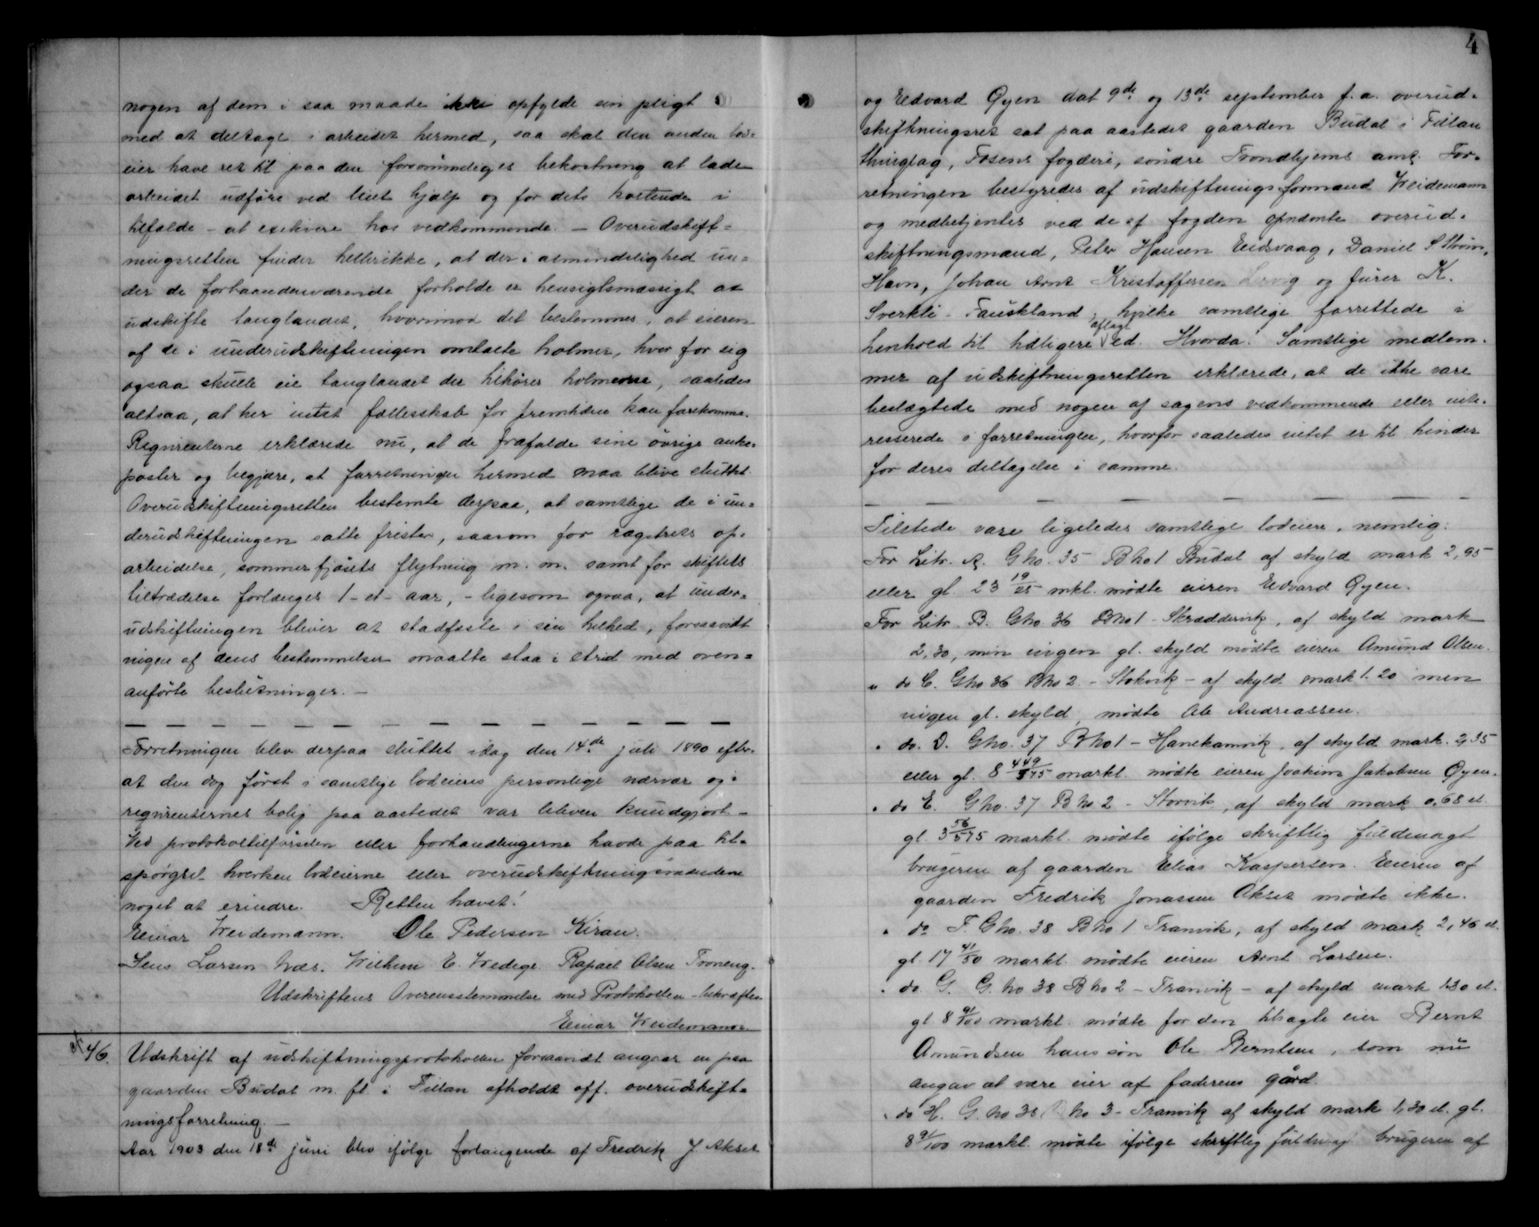 4
nogen af dem i saa maade ikke opfylde sin pligt
med at deltage i arbeidet hermed, saa skal den anden lod-
eier have ret til paa den forsømmeliges bekostning at lade
arbeidet udføre ved leiet hjælp og for dets kostende i
tilfælde - at exekvere hos vedkommende. - Overudskift-
ningsretten finder hellerikke, at der i almindelighed un-
der de forhaandenværende forholde er hensigtsmæssigt at
udskifte tanglandet, hvorimod det bestemmes, at eieren
af de i underudskiftningen omtalte holmer, hver for sig
ogsaa skulle eie tanglandet der tilhører holmerne, saaledes
altsaa, at her intet fællesskab for fremtiden kan forekomme.
Requirenterne erklærede nu, at de frafalde sine øvrige anke-
poster og begjære, at forretningen hermed maa blive sluttet
Overudskiftningsretten bestemte derpaa, at samtlige de i un-
derudskiftningen satte frister, saasom for
arbeidelse, sommerfjøsets flytning m. m. samt for skiftets
tiltrædelse forlænges 1 - et - aar, - ligesom ogsaa, at under-
udskiftningen bliver at stadfæste i sin helhed, forsaavidt
ingen af dens bestemmelser maatte staa i strid med oven-
anførte beslutninger. -
Forretningen blev derpaa sluttet idag den 14de juli 1890 efter
at den dog først i samtlige lodeieres personlige nærvær og i
requirenternes bolig paa aastedet var bleven kundgjort -
Ved protokoltilførselen eller forhandlingerne havde paa til-
spørgsel hverken lodeierne eller overudskiftningsmændene
noget at erindre. Retten hævet!
Einar Weidemann. Ole Pedersen Kiran.
Jens Larsen Næs. Wilhelm E. Wedege. Rafael Olsen Troneng.
Udskriftens Overensstemmelse med Protokollen bekræftes
Einar Weidemann
№ 46. Udskrift af udskiftningsprotokollen foraandt angaar en paa
gaarden Budal m. fl. i Fillan afholdt off. overudskift-
ningsforretning. -
Aar 1903 den 18de juni blev ifølge forlangende af Fredrik J Akset
og Edvard Øyen dat 9de og 13de september f. a. overud-
skiftningsret sat paa aastedet gaarden Budal i Fillan
thinglag, Fosens fogderi, søndre Trondhjems amt. For-
retningen bestyredes af udskiftningsformand Weidemann
og medbetjentes ved de af fogden opnævnte overud-
skiftningsmænd, Peter Hansen Eidsvaag, Daniel S Strøm,
Havn, Johan Arnt Kristoffersen Lervig og Furer K.
Sverkli - Fauskland, hvilke samtlige forrettede i
henhold til tidligere aflagt ed. Hvorda! Samtlige medlem-
mer af udskiftningsretten erklærede, at de ikke vare
beslægtede med nogen af sagens vedkommende eller inte-
resserede i forretningen, hvorfor saaledes intet er til hinder
for deres deltagelse i samme.
Tilstede vare ligeledes samtlige lodeiere, nemlig:
For Litr. A. Gno. 35 Bno 1 Budal af skyld mark 2,95
eller gl. 23 19/25 mkl. mødte eieren Edvard Øyen.
For Litr. B. Gno 36 Bno 1 - Skraddervik, af skyld mark
2,30, men ingen gl. skyld mødte eieren Amund Olsen.
" do C. Gno 36 Bno 2 - Stokvik - af skyld mark 1.20 men
ingen gl. skyld, mødte Ole Andreassen.
" do. D. Gno. 37 Bno 1 - Hanekamvik, af skyld mark. 2,35
eller gl. 8 449/575 markl. mødte eieren Joakim Jakobsen Øyen.
" do E. Gno. 37 Bno 2 - Storvik, af skyld mark 0,68 el.
gl. 3 56/575 markl. mødte ifølge skriftlig fuldmagt
brugeren af gaarden Elias Kaspersen. Eieren af
gaarden Fredrik Jonassen Akset mødte ikke.
" do F. Gno. 38 Bno 1 Tranvik, af skyld mark 2,46 el.
gl 17 41/50 markl. mødte eieren Arnt Larsen.
" do G. G. no 38 Bno 2 - Tranvik - af skyld mark 1.30 el.
gl 8 91/100 markl. mødte for den tilsagte eier Bernt
Amundsen hans søn Ole Berntsen, som nu
angav at være eier af faderens gård.
" do H. G. no 38 Bno 3 - Tranvik af skyld mark 1,30 el. gl.
8 91/100 markl. mødte ifølge skriftlig fuldmagt brugeren af